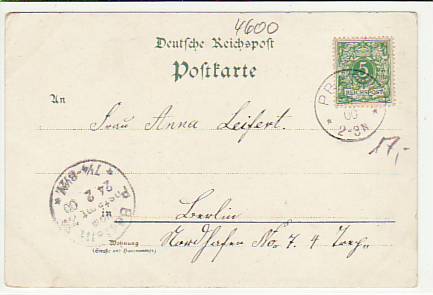 4600
Deutsche Reichspost
Postkarte
5
REICHSPOST
An
2-3N
17,-
Frau Anna Leifert.
7¼-8½V.
24
2
00
in
Berlin
Wohnung
(Straße und Hausnummer)
Nordhafen No. 7. 4 Trep.